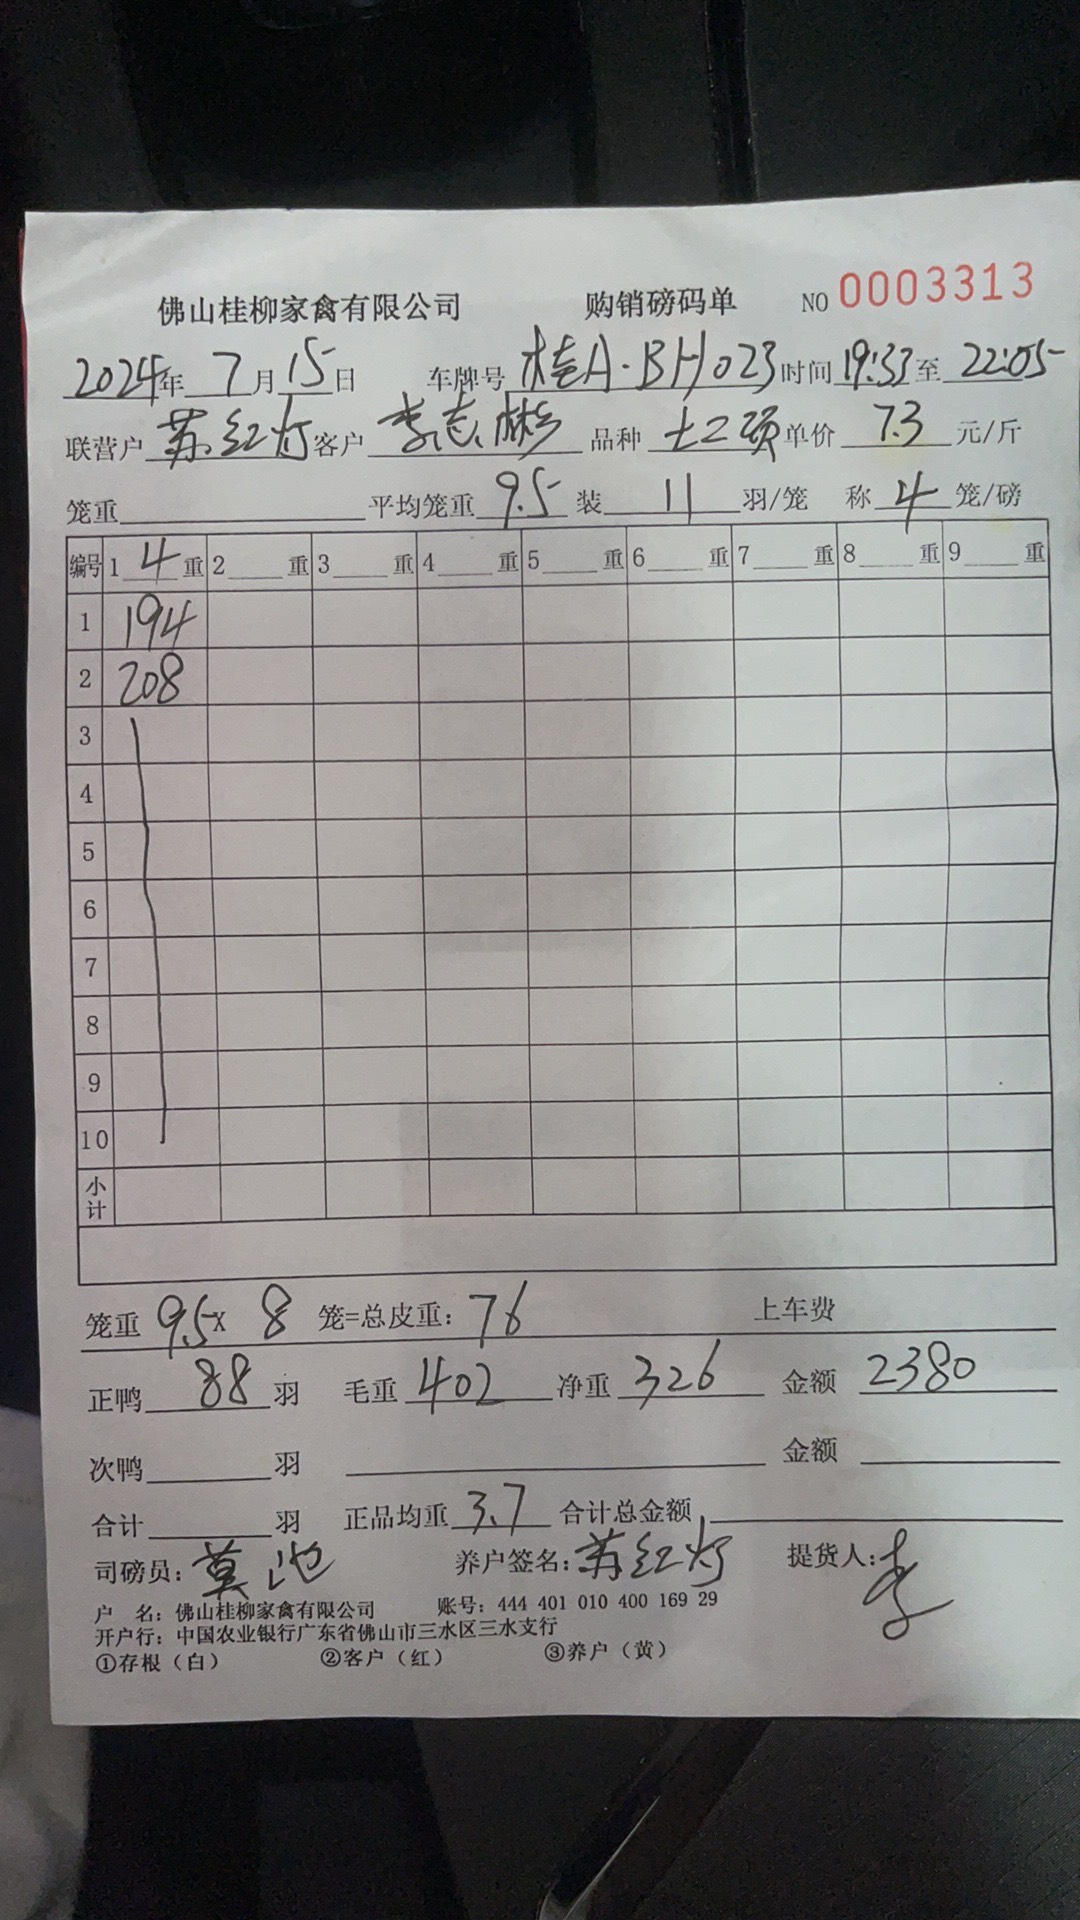 佛山桂柳家禽有限公司 购销磅码单 NO 0003313
2024年 7月15日 车牌号 桂A·BH023 时间 19:33 至 22:05
联营户 苏红灯 客户 李志彬 品种 单价 7.3 元/斤
笼重 平均笼重 9.5 装 11 羽/笼 称 4 笼/磅
编号 1 4 重 2 重 3 重 4 重 5 重 6 重 7 重 8 重 9 重
1 194
2 208
3
4
5
6
7
8
9
10
小计
笼重 9.5 x 8 笼=总皮重: 76 上车费
正鸭 88 羽 毛重 402 净重 326 金额 2380
次鸭 羽 金额
合计 羽 正品均重 3.7 合计总金额
司磅员: 莫 养户签名: 苏红灯 提货人: 李
户 名: 佛山桂柳家禽有限公司 账号: 444 401 010 400 169 29
开户行: 中国农业银行广东省佛山市三水区三水支行
①存根(白) ②客户(红) ③养户(黄)